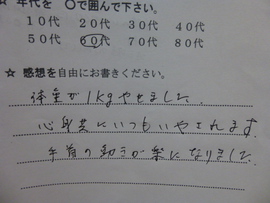 ☆ 年代を ○で囲んで下さい。
10代 20代 30代 40代
50代 60代 70代 80代
☆ 感想を自由にお書きください。
体重が1kgやせました。
心身共にいつもいやされます。
手首の動きが楽になりました。